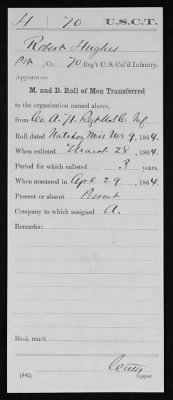 H | 70 | U.S.C.T.
Robert Hughes
Pvt, Co. 70 Reg't U. S. Col'd Infantry.
Appears on
M. and D. Roll of Men Transferred
to the organization named above,
from Co A.
Roll dated Natchez Miss Nov 9, 1864.
When enlisted March 28, 1864.
Period for which enlisted 3 years.
When mustered in Apl 29, 1864.
Present or absent Present
Company to which assigned A.
Remarks:
Book mark:
(842) Copyist.